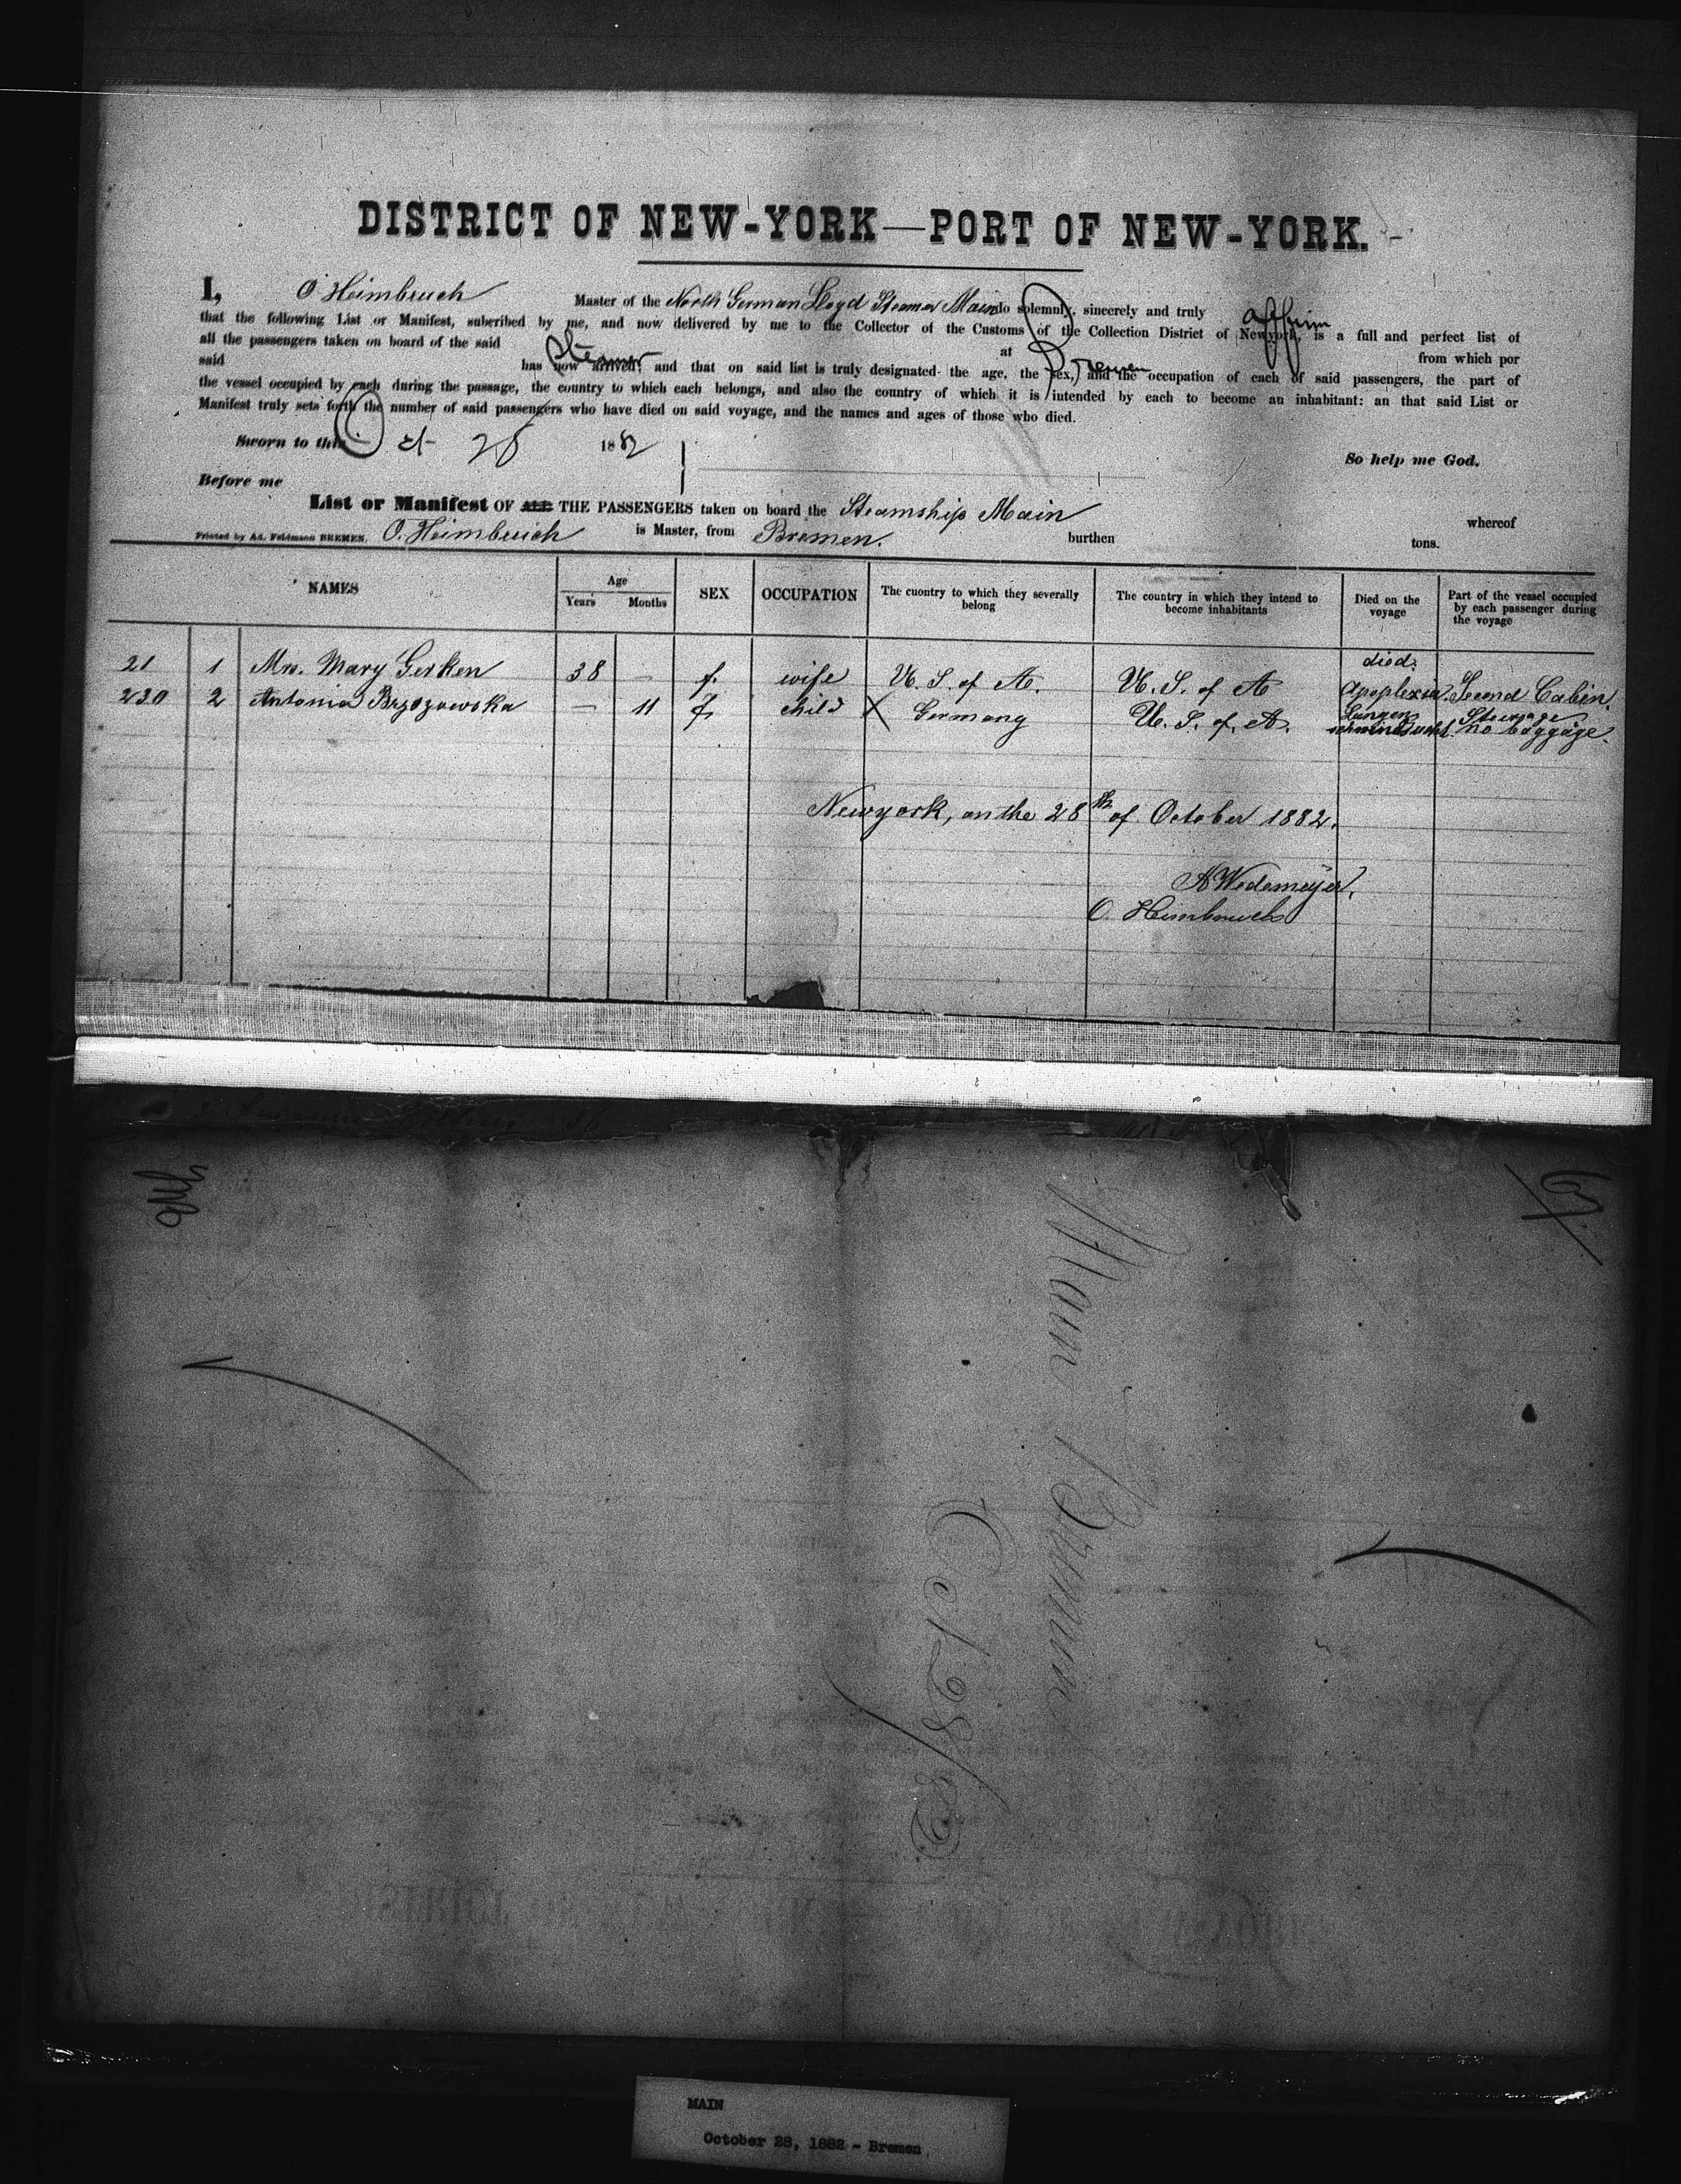 DISTRICT OF NEW-YORK—PORT OF NEW-YORK.
I, O Heimbruch Master of the North German Lloyd Steamer Main do solemnly, sincerely and truly affirm
that the following List or Manifest, suberibed by me, and now delivered by me to the Collector of the Customs of the Collection District of Newyork, is a full and perfect list of
all the passengers taken on board of the said Steamer at Bremen from which por
said has now arrived; and that on said list is truly designated- the age, the sex, and the occupation of each of said passengers, the part of
the vessel occupied by each during the passage, the country to which each belongs, and also the country of which it is intended by each to become an inhabitant: an that said List or
Manifest truly sets forth the number of said passengers who have died on said voyage, and the names and ages of those who died.
Sworn to this Oct 28 1882
So help me God.
Before me
List or Manifest OF ALL THE PASSENGERS taken on board the Steamship Main whereof
Printed by Ad. Feldmann BREMEN. O. Heimbruch is Master, from Bremen. burthen tons.
NAMES Age Years Months SEX OCCUPATION The cuontry to which they severally belong The country in which they intend to become inhabitants Died on the voyage Part of the vessel occupied by each passenger during the voyage
21 1 Mrs. Mary Gerken 38 — f. wife U. S. of A. U. S. of A died: Apoplexia. Second Cabin.
230 2 Antonia Brzozowska — 11 f. child X Germany U. S. of A. Lungenschwindsucht. Steerage no baggage.
Newyork, on the 28th of October 1882.
A Wedemeyer.
O. Heimbruch
Main Bremen
Oct 28/82
MAIN
October 28, 1882 - Bremen